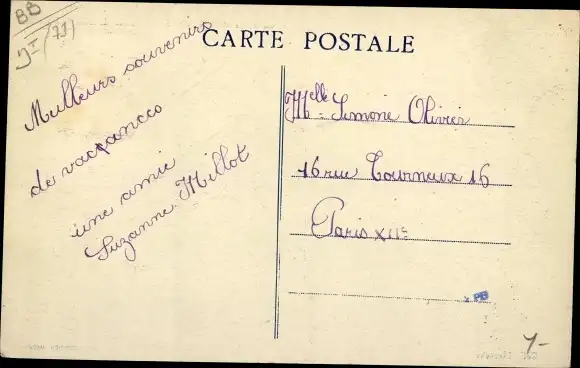 BB
CARTE POSTALE
Meilleurs souvenirs
de vacçancces
une amie
Suzanne Millot
Melle Simone Olivier
16 rue Tourneux 16
Paris XIIe
PB